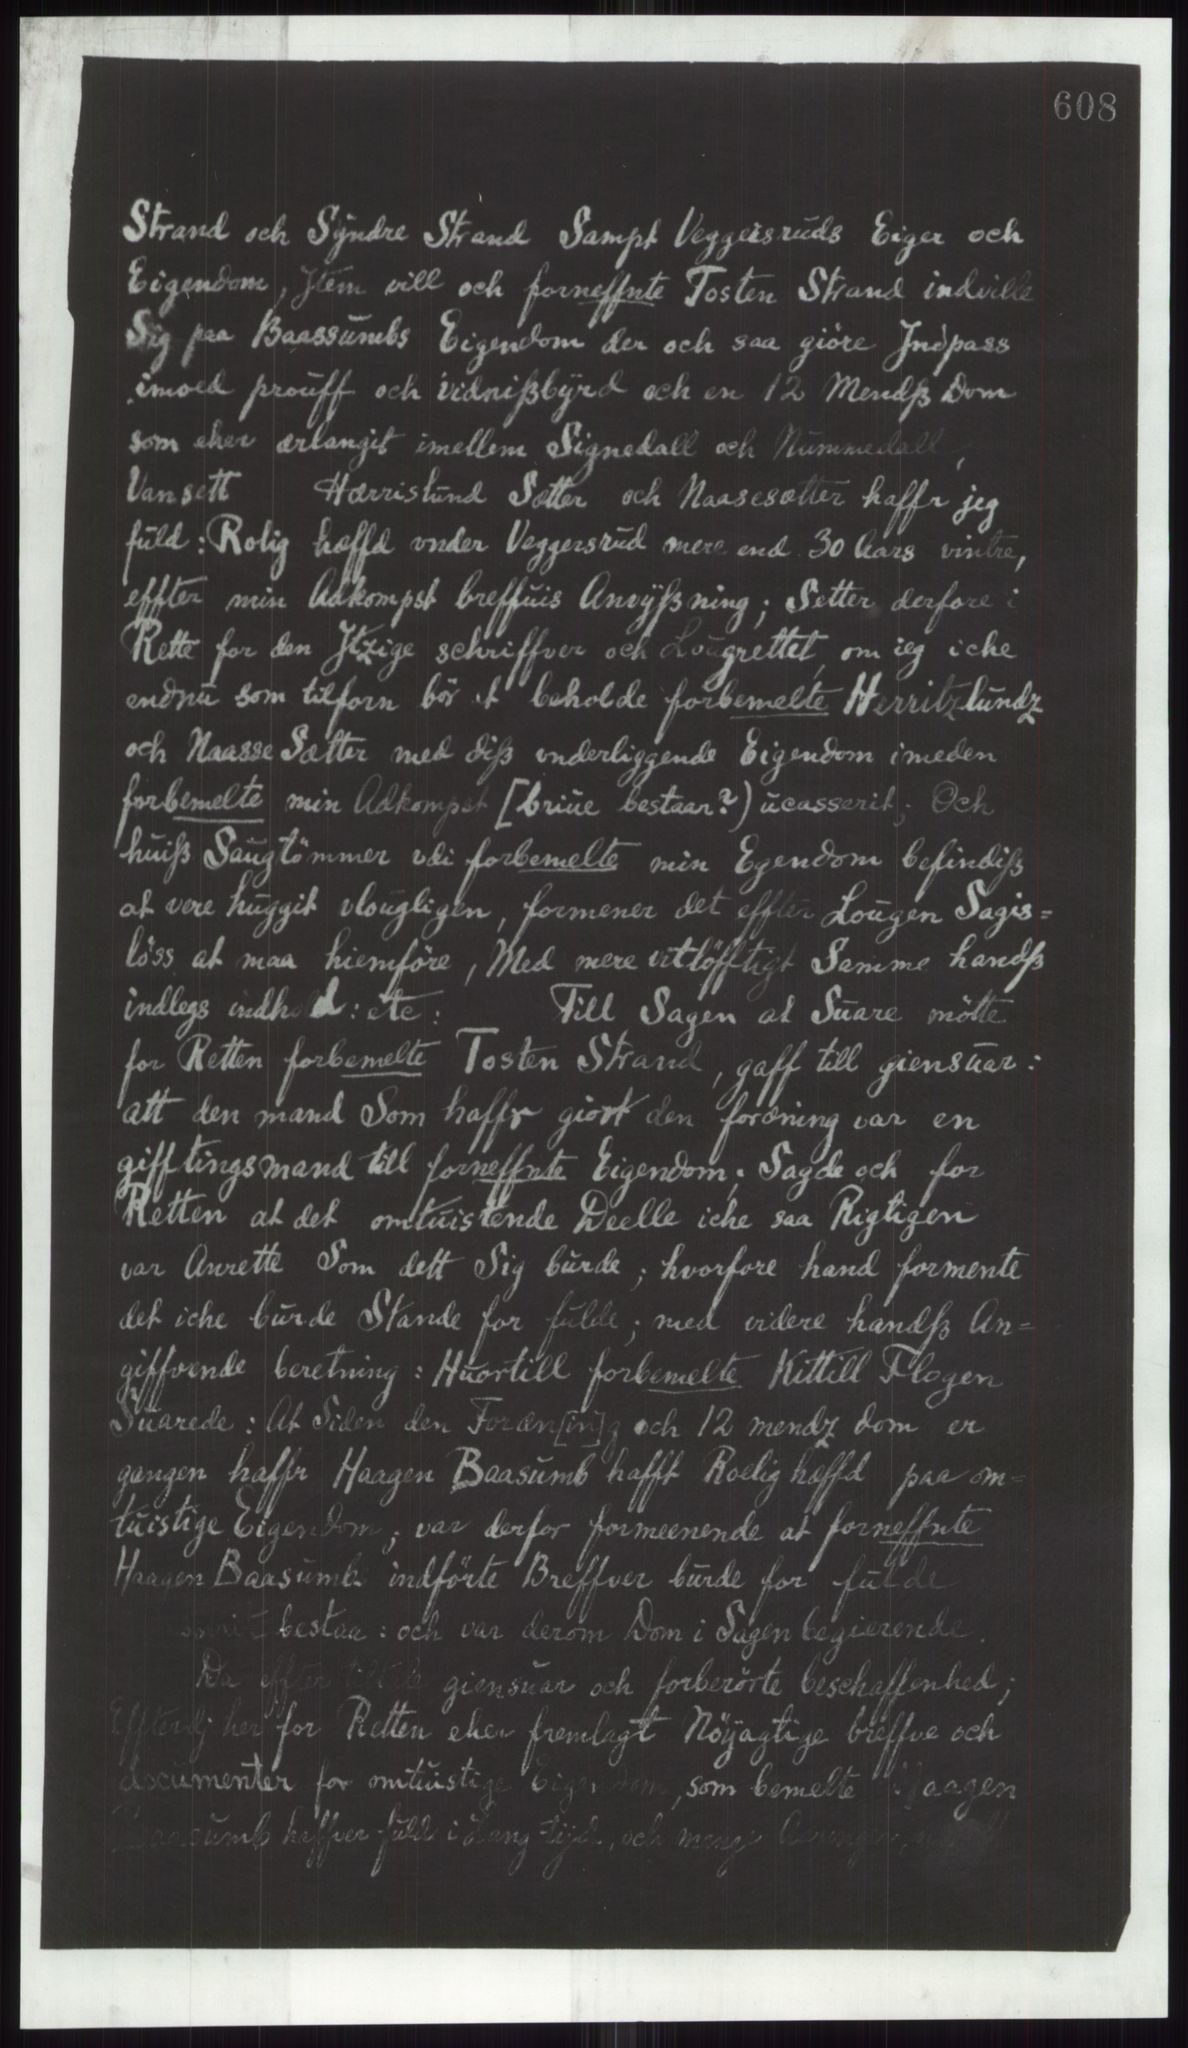 608
Strand och Syndre Strand Sampt Veggersruds Eiger och
Eigendom, Item vill och forneffnte Tosten Strand indville
Sig paa Baassumbs Eigendom der och saa giöre Indpass
imoed prouff och vidnißbyrd och en 12 Mendß Dom
som eher ærlangit imellem Signedall och Nummedall,
Vansett Hærrislund Sætter och Naasesætter haffr jeg
fuld: Rolig hæffd vnder Veggersrud mere end 30 Aars vintre,
effter min Adkompst breffuis Anvÿßning; Setter derfore i
Rette for den Itzige schriffver och Lougrettet, om jeg iche
endnu som tilforn bör at beholde forbemelte Herritzlundz
och Naasse Sætter med diß vnderliggende Eigendom imeden
forbemelte min Adkompst [briue bestaar?) ucasserit; Och
huiß Saugtömmer vdi forbemelte min Egendom befindiß
at vere huggit vlougligen, formener det effter Lougen Sagis=
löss at maa hiemföre, Med mere vitlöfftigt Samme handß
indlegs indhold: etc: Till Sagen at Suare mötte
for Retten forbemelte Tosten Strand, gaff till giensuar:
att den mand Som haffr giort den foræning var en
gifftingsmand till forneffnte Eigendom; Sagde och for
Retten at det omtuistende Deelle iche saa Rigtigen
var Anrette Som dett Sig burde; hvorfore hand formente
det iche burde Stande for fulde; med videre handß An=
giffvende beretning: Huortill forbemelte Kittill Flagen
Suarede: At Siden den Foræn[in]g och 12 mendz dom er
gangen haffr Haagen Baasumb hafft Roelig hæffd paa om=
tuistige Eigendom; var derfor formeenende at forneffnte
Haagen Baasumb indförte Breffver burde for fulde
bestaa: och var derom Dom i Sagen begierende.
Da effter giensuar och forberörte beschaffenhed;
Effterdj her for Retten eher fremlagt Nöyagtige breffve och
documenter for omtuistige Eigendom, som bemelte Haagen
Baasumb haffver fuldt i Lang tijd, och